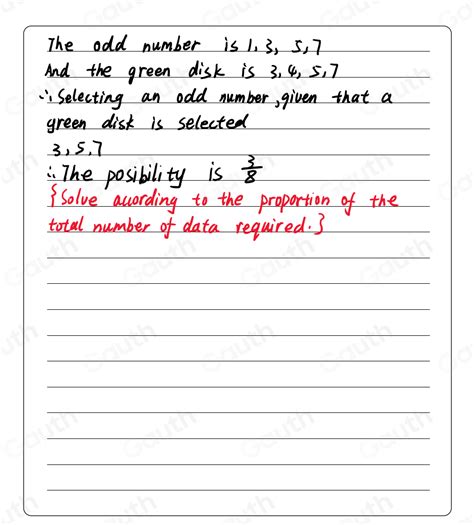 The odd number is 1, 3, 5, 7
And the green disk is 3, 4, 5, 7
∵ Selecting an odd number, given that a
green disk is selected
3, 5, 7
∴ The posibility is 3/8
{Solve auording to the proportion of the
total number of data required.}